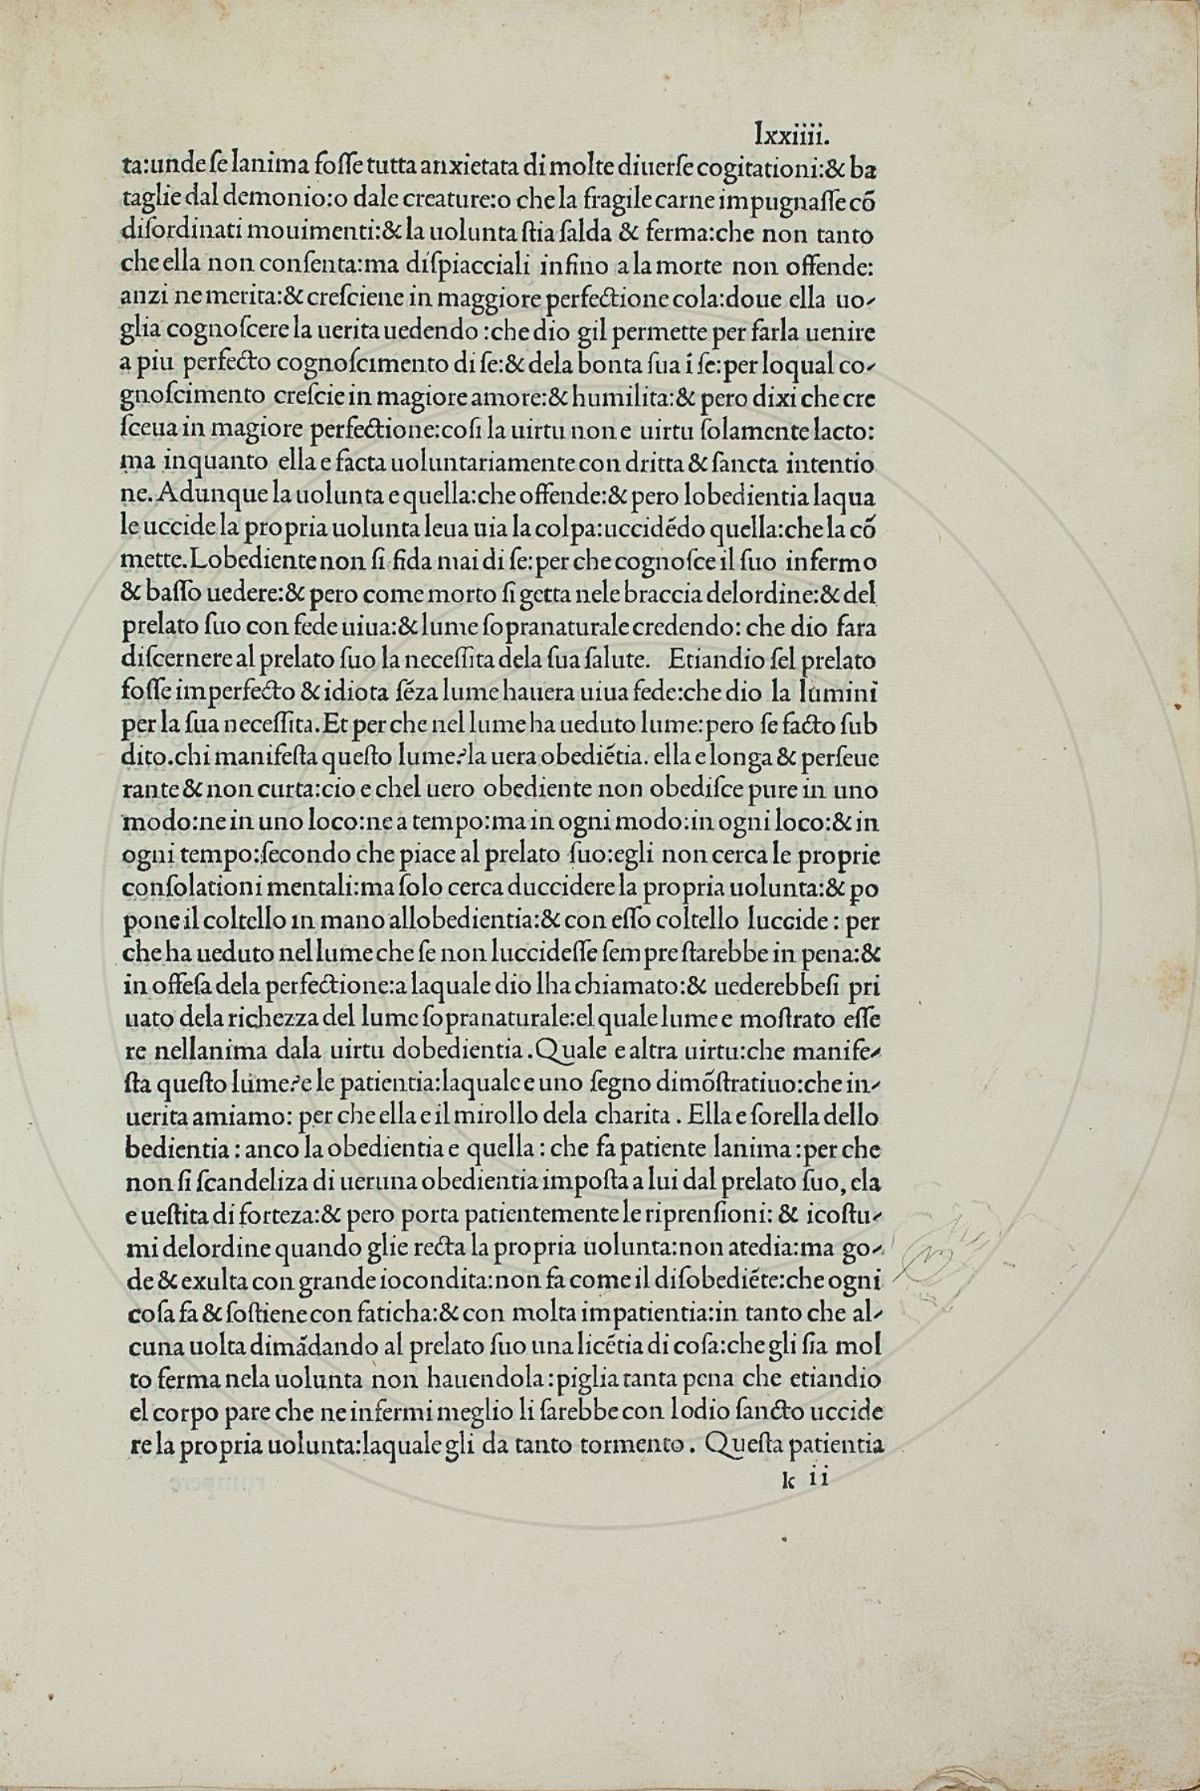 lxxiiii.
ta:unde ſe lanima foſſe tutta anxietata di molte diuerſe cogitationi:& ba
taglie dal demonio:o dale creature:o che la fragile carne impugnaſſe cõ
diſordinati mouimenti:& la uolunta ſtia ſalda & ferma:che non tanto
che ella non conſenta:ma diſpiacciali infino a la morte non offende:
anzi ne merita:& creſciene in maggiore perfectione cola:doue ella uo-
glia cognoſcere la uerita uedendo :che dio gil permette per farla uenire
a piu perfecto cognoſcimento di ſe:& dela bonta ſua ĩ ſe:per loqual co-
gnoſcimento creſcie in magiore amore:& humilita:& pero dixi che cre
ſceua in magiore perfectione:coſi la uirtu non e uirtu ſolamente lacto:
ma inquanto ella e facta uoluntariamente con dritta & ſancta intentio
ne. Adunque la uolunta e quella:che offende:& pero lobedientia laqua
le uccide la propria uolunta leua uia la colpa:uccidẽdo quella:che la cõ
mette. Lobediente non ſi fida mai di ſe:per che cognoſce il ſuo infermo
& baſſo uedere:& pero come morto ſi getta nele braccia delordine:& del
prelato ſuo con fede uiua:& lume ſopranaturale credendo: che dio fara
diſcernere al prelato ſuo la neceſſita dela ſua ſalute. Etiandio ſel prelato
foſſe imperfecto & idiota ſẽza lume hauera uiua fede:che dio la lumini
per la ſua neceſſita. Et per che nel lume ha ueduto lume:pero ſe facto ſub
dito.chi manifeſta queſto lume?la uera obediẽtia. ella e longa & perſeue
rante & non curta:cio e chel uero obediente non obediſce pure in uno
modo:ne in uno loco:ne a tempo:ma in ogni modo:in ogni loco:& in
ogni tempo:ſecondo che piace al prelato ſuo:egli non cerca le proprie
conſolationi mentali:ma ſolo cerca duccidere la propria uolunta:& ꝑo
pone il coltello in mano allobedientia:& con eſſo coltello luccide : per
che ha ueduto nel lume che ſe non luccideſſe ſempre ſtarebbe in pena:&
in offeſa dela perfectione:a laquale dio lha chiamato:& uederebbeſi pri
uato dela richezza del lume ſopranaturale:el quale lume e moſtrato eſſe
re nellanima dala uirtu dobedientia. Quale e altra uirtu:che manife-
ſta queſto lume?e le patientia:laquale e uno ſegno dimõſtratiuo:che in-
uerita amiamo: per che ella e il mirollo dela charita . Ella e ſorella dello
bedientia : anco la obedientia e quella : che fa patiente lanima :per che
non ſi ſcandeliza di ueruna obedientia impoſta a lui dal prelato ſuo, ela
e ueſtita di forteza:& pero porta patientemente le riprenſioni: & icoſtu-
mi delordine quando glie recta la propria uolunta:non atedia:ma go-
de & exulta con grande iocondita:non fa come il diſobediẽte:che ogni
coſa fa & ſoſtiene con faticha:& con molta impatientia:in tanto che al-
cuna uolta dimãdando al prelato ſuo una licẽtia di coſa:che gli ſia mol
to ferma nela uolunta non hauendola :piglia tanta pena che etiandio
el corpo pare che ne infermi meglio li ſarebbe con lodio ſancto uccide
re la propria uolunta:laquale gli da tanto tormento. Queſta patientia
k ii